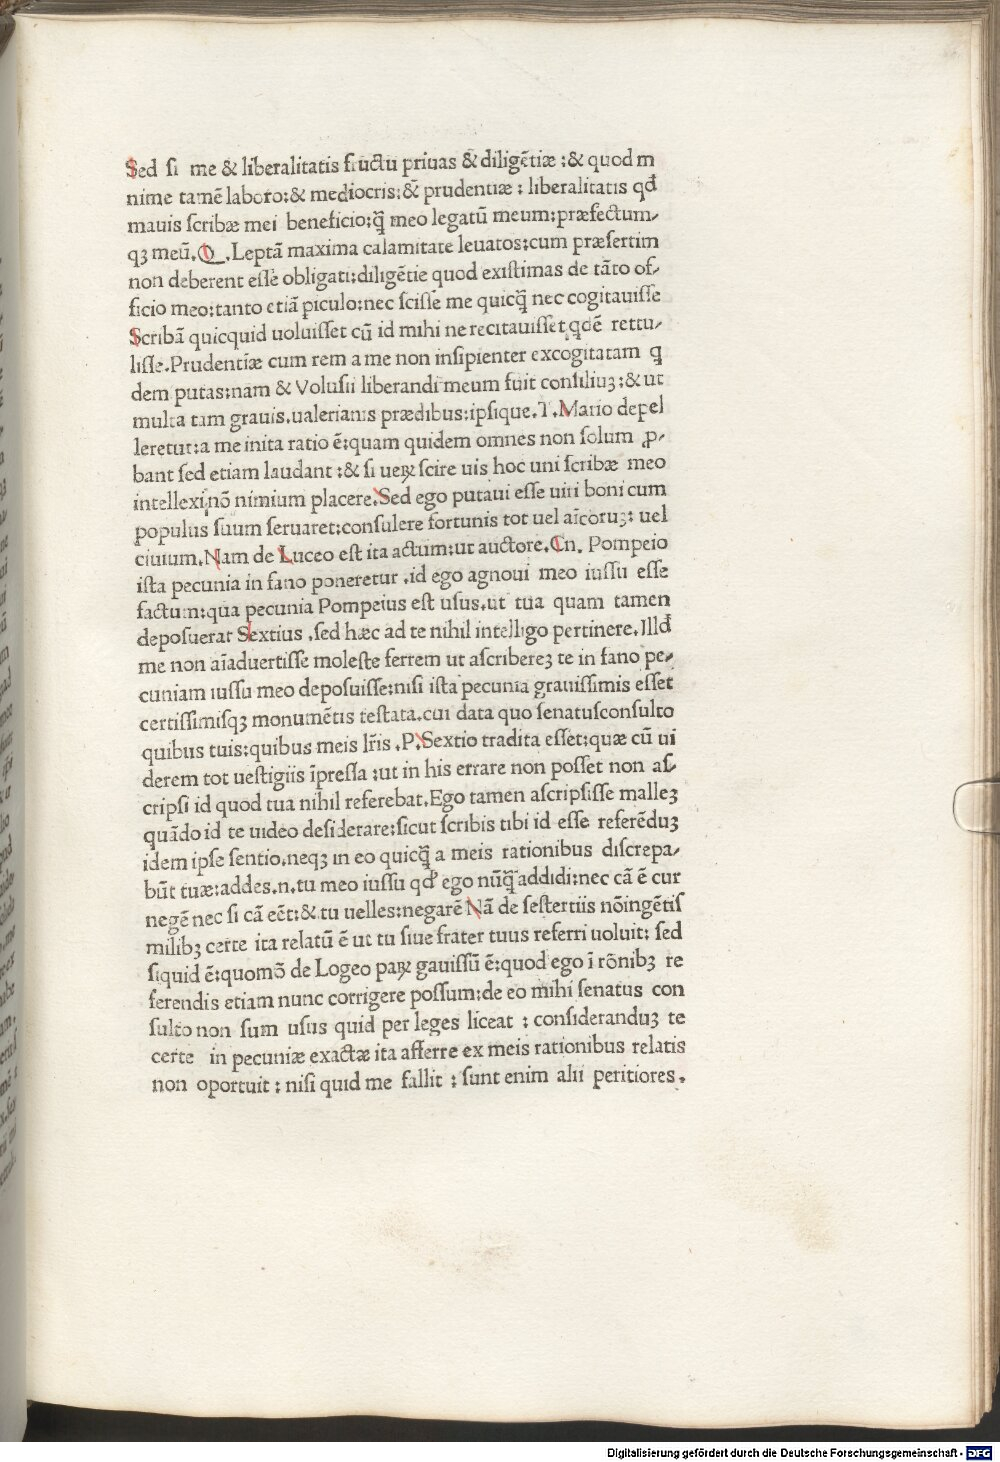 Sed si me & liberalitatis fructu priuas & diligẽtiæ:& quod m
nime tamẽ laboro:& mediocris:& prudentiæ: liberalitatis qđ
mauis scribæ mei beneficio:q̃ meo legatũ meum:præfectum-
qꝫ meũ.Q.Leptã maxima calamitate leuatos:cum præsertim
non deberent esse obligati:diligẽtie quod existimas de tãto of-
ficio meo:tanto etiã piculo:nec scisse me quicq̃ nec cogitauisse
Scribã quicquid uoluisset cũ id mihi ne recitauisset qdẽ rettu-
lisse.Prudentiæ cum rem a me non insipienter excogitatam q
dem putas:nam & Volusii liberandi meum fuit consiliuꝫ:& ut
multa tam grauis.ualerianis prædibus:ipsique.T.Mario depel
leretur:a me inita ratio ẽ:quam quidem omnes non solum ꝓ-
bant sed etiam laudant:& si ueꝝ scire uis hoc uni scribæ meo
intellexi nõ nimium placere.Sed ego putaui esse uiri boni cum
populus suum seruaret:consulere fortunis tot uel aĩcoruꝫ: uel
ciuium.Nam de Luceo est ita actum:ut auctore.Cn. Pompeio
ista pecunia in fano poneretur .id ego agnoui meo iussu esse
factum:qua pecunia Pompeius est usus.ut tua quam tamen
deposuerat Sextius .sed hæc ad te nihil intelligo pertinere.Illđ
me non aĩaduertisse moleste ferrem ut ascribereꝫ te in fano pe-
cuniam iussu meo deposuisse:nisi ista pecunia grauissimis esset
certissimisqꝫ monumẽtis testata.cui data quo senatusconsulto
quibus tuis:quibus meis lr̃is .P.Sextio tradita esset:quæ cũ ui
derem tot uestigiis ĩpressa :ut in his errare non posset non as-
cripsi id quod tua nihil referebat.Ego tamen ascripsisse malleꝫ
quãdo id te uideo desiderare:sicut scribis tibi id esse referẽduꝫ
idem ipse sentio.neqꝫ in eo quicq̃ a meis rationibus discrepa-
bũt tuæ:addes.n.tu meo iussu qđ ego nũq̃ addidi:nec cã ẽ cur
negẽ nec si cã eẽt:& tu uelles:negarẽ Nã de sestertiis nõingẽtis
milibꝫ certe ita relatũ ẽ ut tu siue frater tuus referri uoluit: sed
siquid ẽ:quomõ de Logeo paꝝ gauissũ ẽ:quod ego ĩ rõnibꝫ re
ferendis etiam nunc corrigere possum:de eo mihi senatus con
sulto non sum usus quid per leges liceat : consideranduꝫ te
certe in pecuniæ exactæ ita afferre ex meis rationibus relatis
non oportuit : nisi quid me fallit : sunt enim alii peritiores.
Digitalisierung gefördert durch die Deutsche Forschungsgemeinschaft - DFG